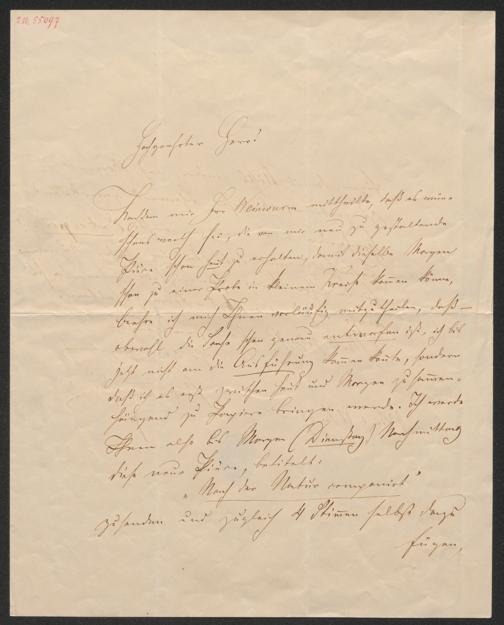 I.N. 55097
Hochgeehrter Herr!
Nachdem mir Herr Weinwurm mittheilte, daß es wün-
schenswerth sei, die von mir neu zu gestaltende
Pièce schon heut zu erhalten, damit dieselbe Morgen
schon zu einer Probe in kleinem Kreise kommen könne,
beehre ich mich Ihnen vorläufig mitzutheilen, daß –
obwohl die Sache schon genau entworfen ist, ich bis
jetzt nicht an die Ausführung kommen konte, sondern
daß ich es erst zwischen heut und Morgen zusammen-
hängend zu Papiere bringen werde. Ich werde
Ihnen also bis Morgen (Dienstag) Nachmittag
diese neue Pièce, betitelt:
"Nach der Natur componirt"
zusenden und zugleich 4 Stimmen selbst dazu
fügen,